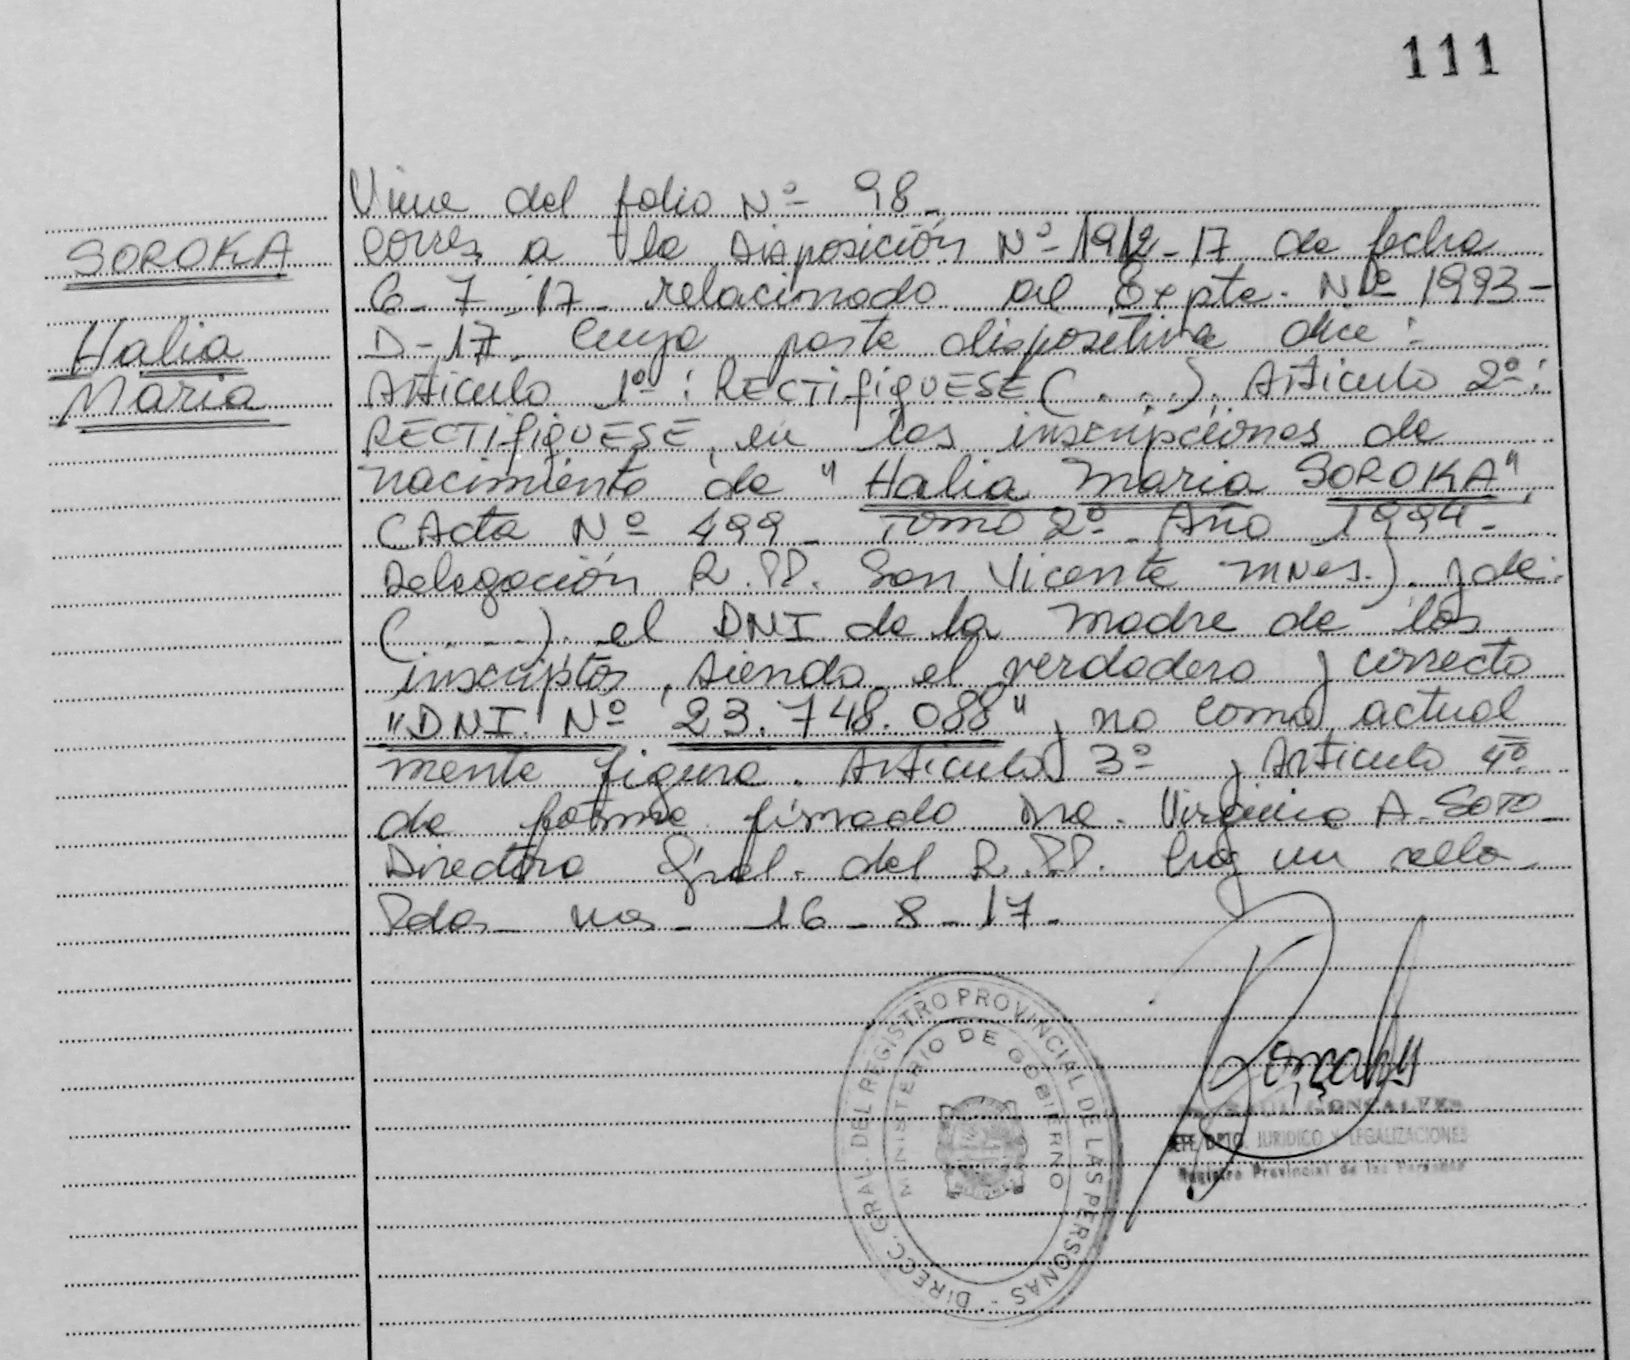 111
Viene del folio Nº 98_
SOROKA
Corres. a la Disposición Nº 1912-17 de fecha
6-7-17- relacionado al Expte. Nº 1993-
Halia
D-17. Cuya parte dispositiva dice:
Maria
Articulo 1º: RECTIFIQUESE (....). Articulo 2º:
RECTIFIQUESE, en las inscripciones de
nacimiento de "Halia Maria SOROKA",
(Acta Nº 499_ Tomo 2º_ Año 1994-
Delegación R.PP. San Vicente Mnes.) y de:
(....) el DNI de la madre de los
inscriptos, siendo el verdadero y correcto
"DNI. Nº 23.748.088", no como actual
mente figura. Articulo 3º y Articulo 4º
de forma firmado Dra. Virginia A. SOTO_
Directora Gral. del R.PP. hay un sello_
Pdas_ Mes_ 16_8_17_
DIRECC. GRAL. DEL REGISTRO PROVINCIAL DE LAS PERSONAS -
MINISTERIO DE GOBIERNO
GONCALVES
JEFE DPTO. JURIDICO Y LEGALIZACIONES
Registro Provincial de las Personas